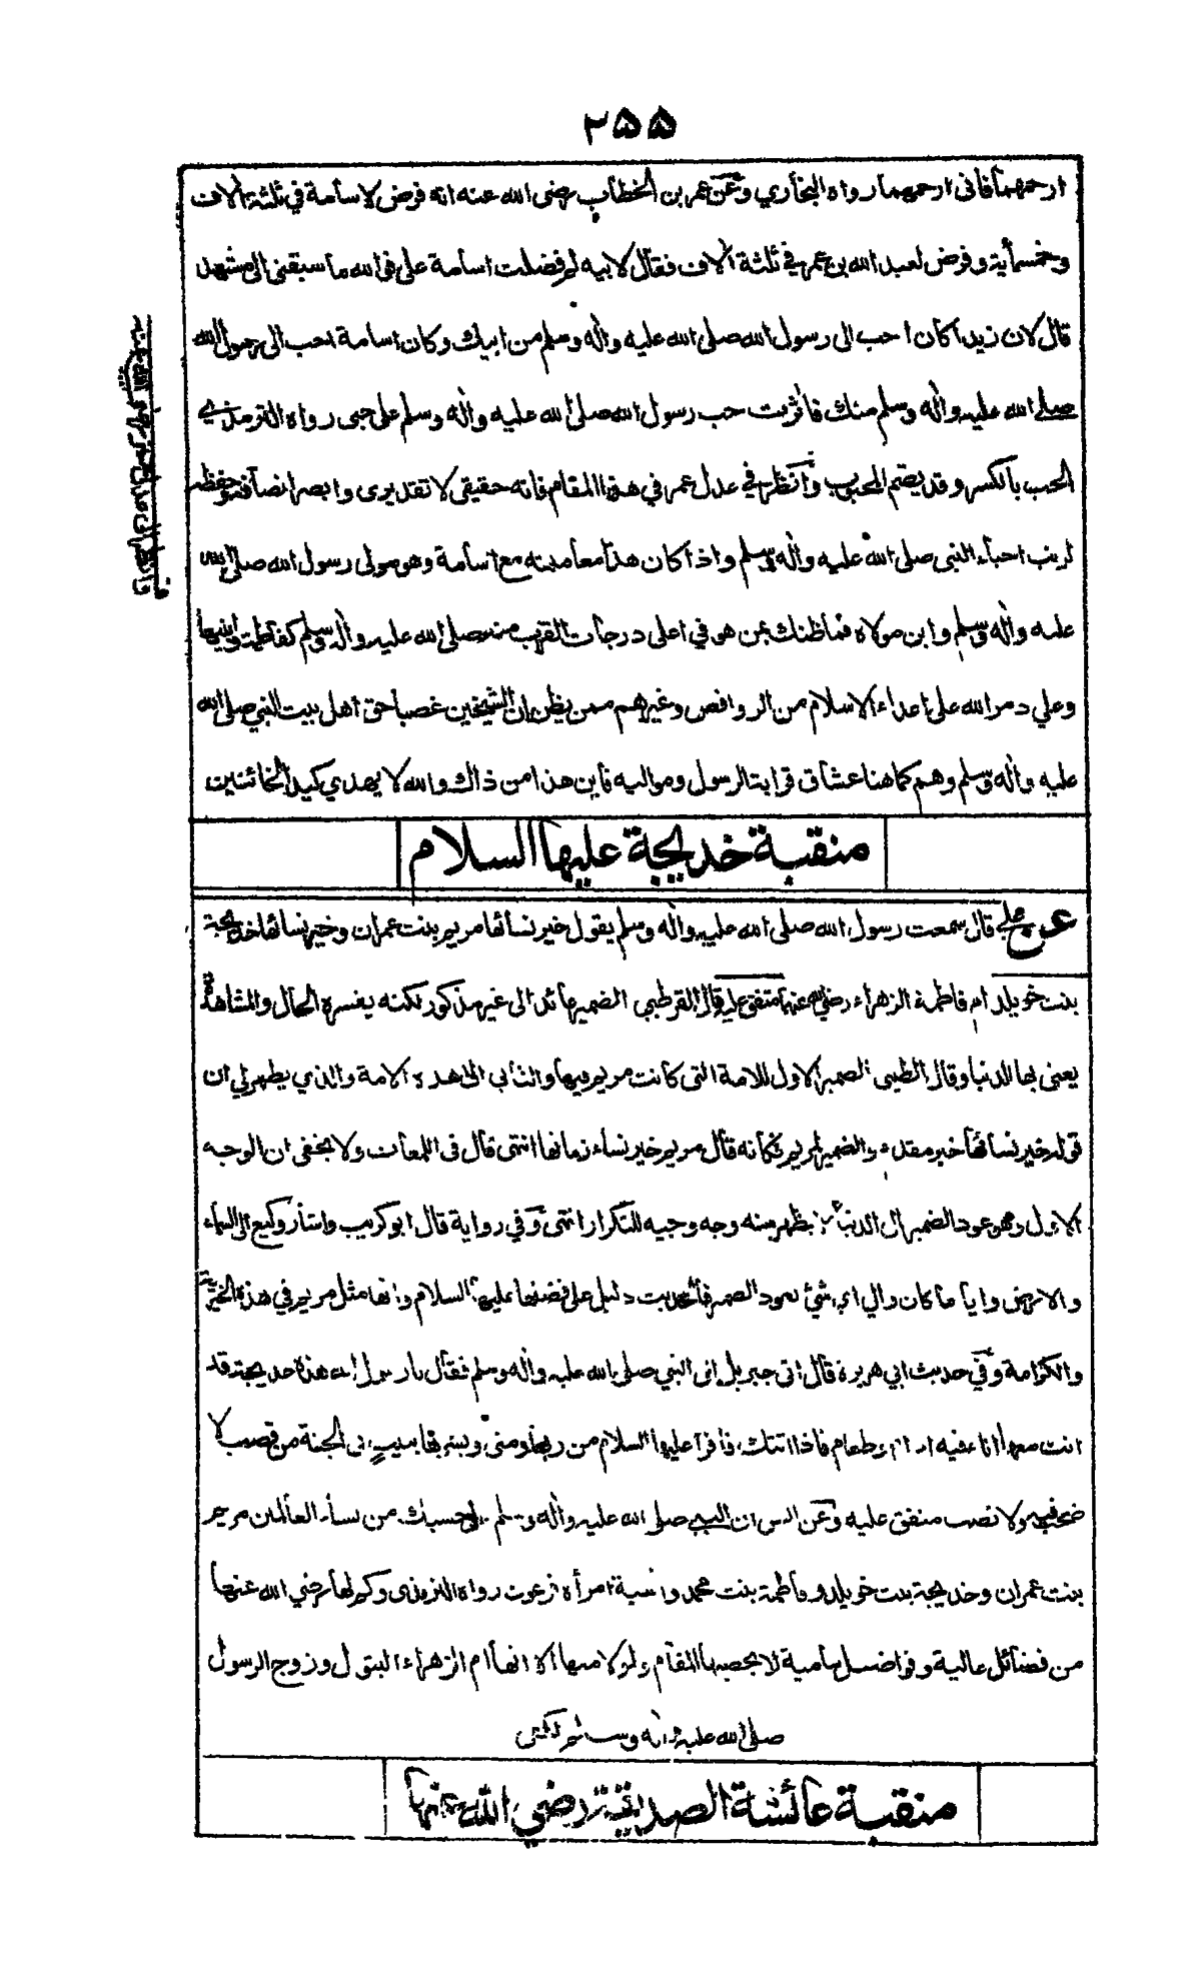 ٢٥٥
ارحمهما فانى ارحمهما رواه البخاري وعن عمر بن الخطاب رضى الله عنه انه فرض لاسامة في ثلثة الاف
وخمسمأية وفرض لعبد الله بن عمر في ثلثة الاف فقال لابيه لم فضلت اسامة على فوالله ما سبقنى الى مشهد
قال لان زيدا كان احب الى رسول الله صلى الله عليه واله وسلم من ابيك وكان اسامة احب الى رسول الله
صلى الله عليه واله وسلم منك فاثرت حب رسول الله صلى الله عليه واله وسلم على حبى رواه الترمذي
الحب بالكسر وقد يضم المحبوب وانظر في عدل عمر في هذا المقام فانه حقيقى لا تقديرى وابصر انصافه وحفظه
لرتب احباء النبى صلى الله عليه واله وسلم واذا كان هذا معاملته مع اسامة وهو مولى رسول الله صلى الله
عليه واله وسلم وابن مولاه فماظنك بمن هو في اعلى درجات القرب منه صلى الله عليه واله وسلم كفاطمة وابنيها
وعلي دمر الله على اعداء الاسلام من الروافض وغيرهم ممن يظن ان الشيخين غصبا حق اهل بيت النبي صلى الله
عليه واله وسلم وهم كما هنا عشاق قرابة الرسول ومواليه فاين هذا من ذاك والله لا يهدي كيد الخائنين
منقبة خديجة عليها السلام
عن علي قال سمعت رسول الله صلى الله عليه واله وسلم يقول خير نسائها مريم بنت عمران وخير نسائها خديجة
بنت خويلد ام فاطمة الزهراء رضي الله عنهما متفق عليه قال القرطبي الضمير عائد الى غير مذكور لكنه يفسره الحال والمشاهدة
يعنى بها الدنيا وقال الطيبى الضمير الاول للامة التى كانت مريم فيها والثانى الى هذه الامة والذي يظهر لي ان
قوله خير نسائها خبر مقدم والضمير لمريم فكأنه قال مريم خير نساء زمانها انتهى قال فى اللمعات ولا يخفى ان الوجه
الاول وهو عود الضمير الى الدنيا يظهر منه وجه وجيه للتكرار انتهى وفي رواية قال ابو كريب واشار وكيع الى السماء
والارض وايا ما كان والي اي شئ يعود الضمير فالحديث دليل على فضلها عليها السلام وانها مثل مريم في هذه الخيرية
والكرامة وفي حديث ابي هريرة قال اتى جبريل النبي صلى الله عليه واله وسلم فقال يا رسول الله هذه خديجة قد
اتت معها اناء فيه ادام وطعام فاذا اتتك فاقرأ عليها السلام من ربها ومنى وبشرها ببيت فى الجنة من قصب لا
صخب فيه ولا نصب متفق عليه وعن انس ان النبي صلى الله عليه واله وسلم قال حسبك من نساء العالمين مريم
بنت عمران وخديجة بنت خويلد وفاطمة بنت محمد واسية امرأة فرعون رواه الترمذى وكم لها رضي الله عنها
من فضائل عالية وفواضل سامية لا يحصيها المقام ولو لا منها الا انها ام الزهراء البتول وزوج الرسول
صلى الله عليه واله وسلم لكفى
منقبة عائشة الصديقة رضي الله عنها